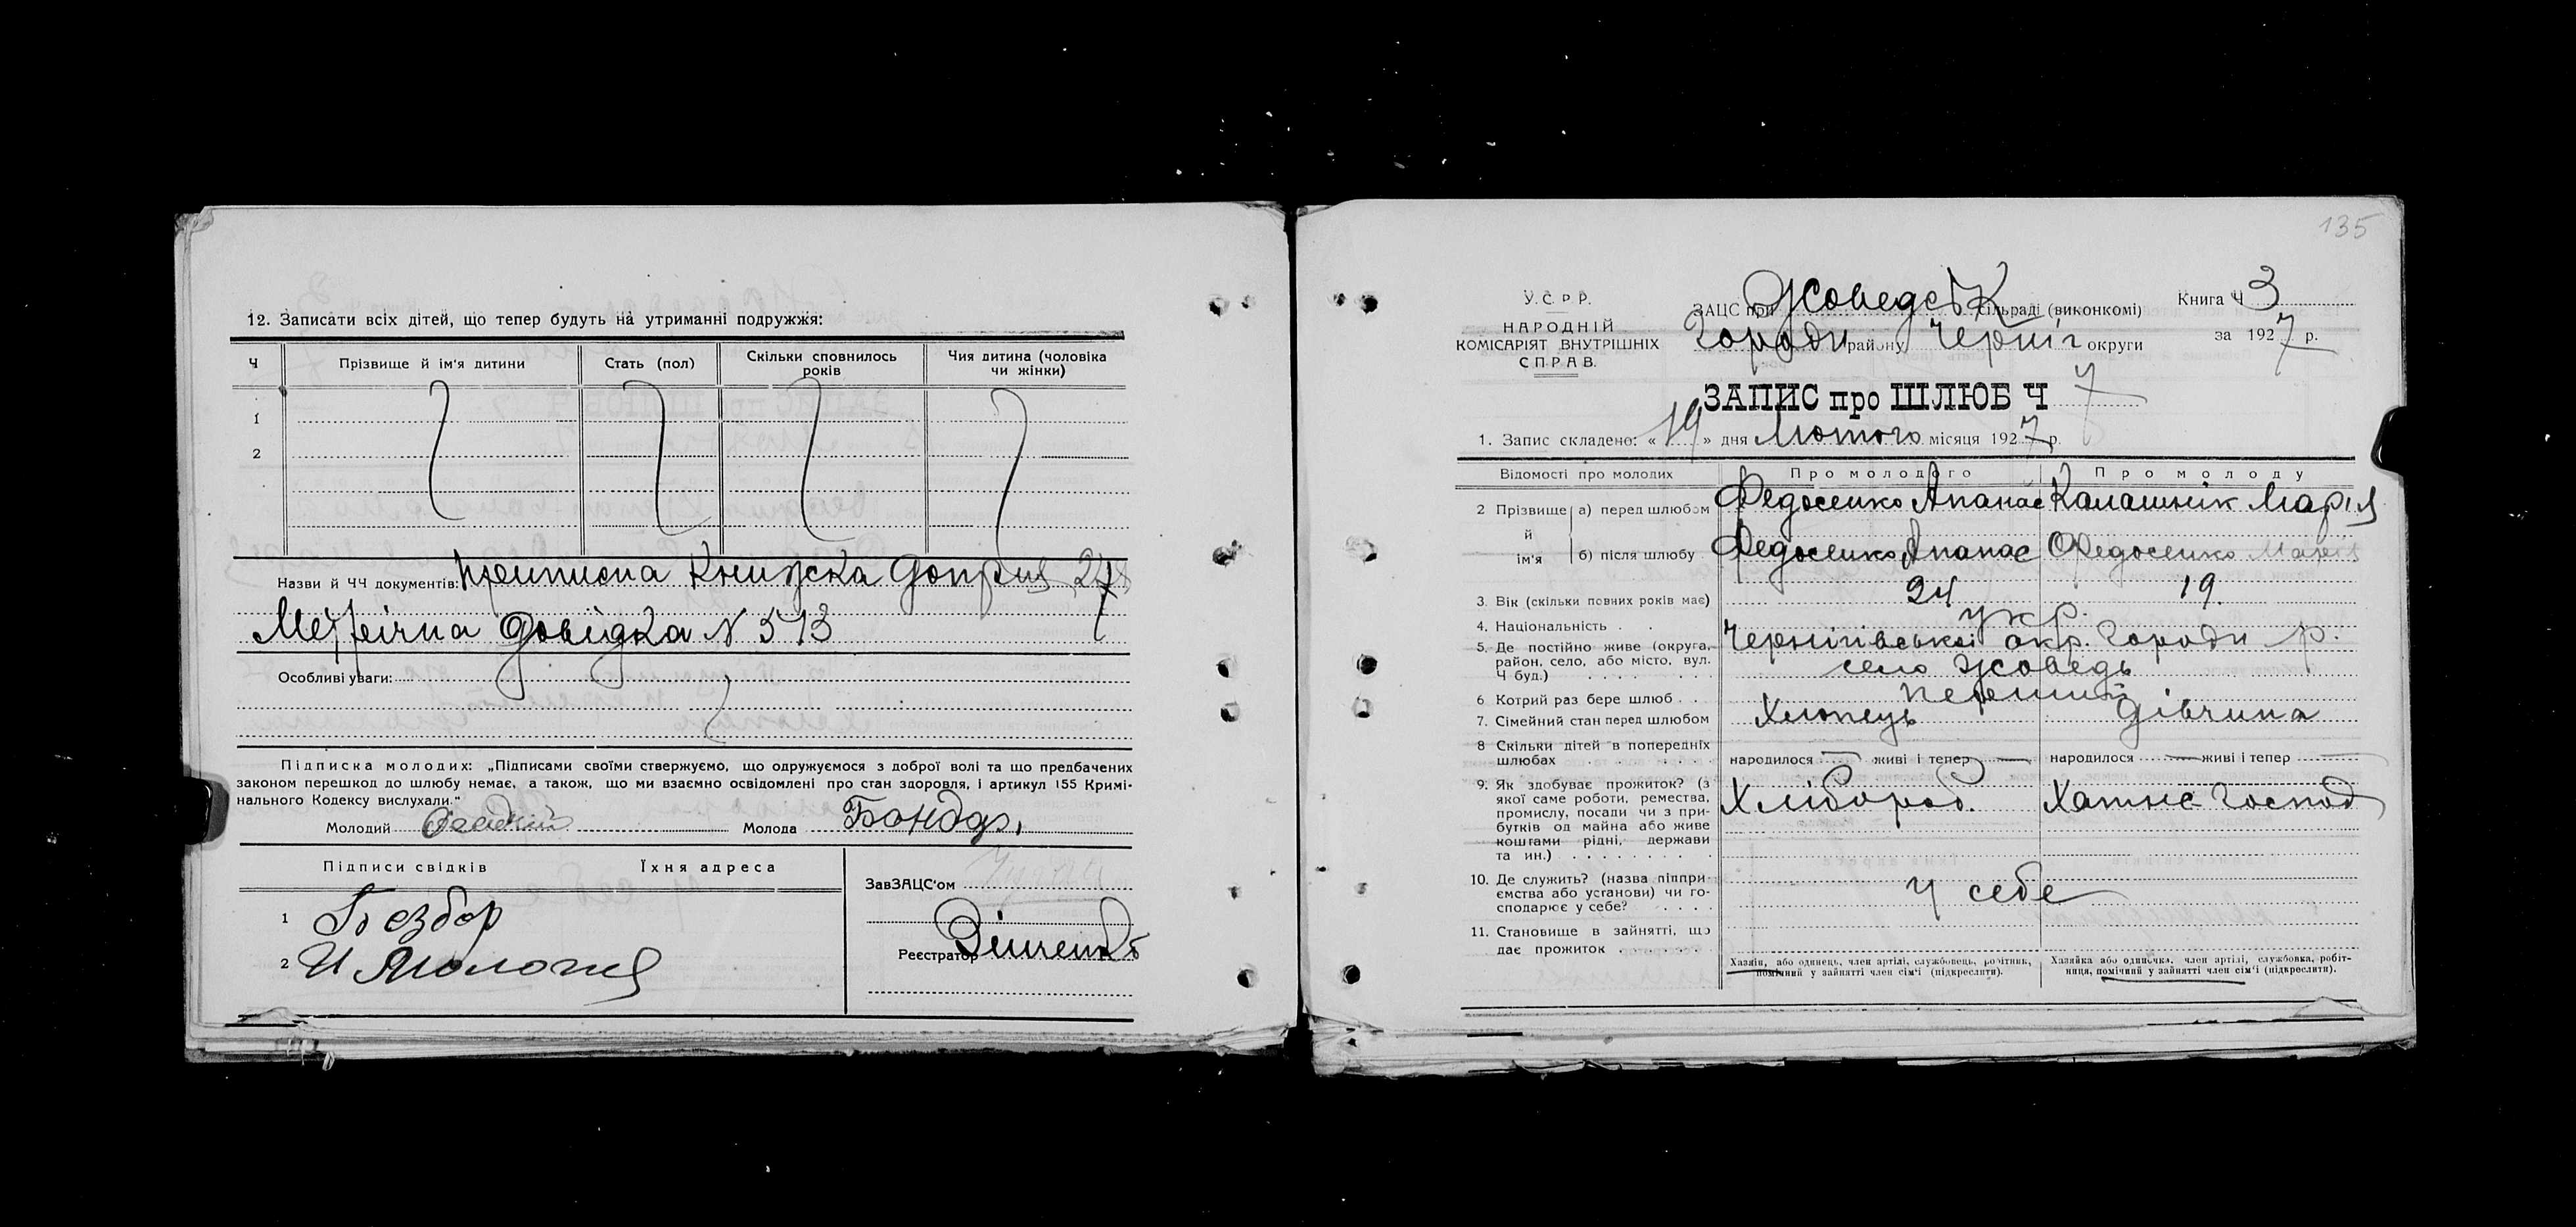 12. Записати всіх дітей, що тепер будуть на утриманні подружжя:
Ч Прізвище й ім'я дитини Стать (пол) Скільки сповнилось років Чия дитина (чоловіка чи жінки)
1
2
Назви й ЧЧ документів: книжка
Метрічна довідка N 513
Особливі уваги:
Підписка молодих: „Підписами своїми ствержуємо, що одружуємося з доброї волі та що предбачених
законом перешкод до шлюбу немає, а також, що ми взаємно освідомлені про стан здоровля, і артикул 155 Кримі-
нального Кодексу вислухали."
Молодий Молода Бондар
Підписи свідків Їхня адреса
ЗавЗАЦС'ом
1 Безбор
2 И
Реєстратор
135
У.С.Р.Р.
НАРОДНІЙ
КОМІСАРІЯТ ВНУТРІШНІХ
СПРАВ.
ЗАЦС при Жоведськ сільраді (виконкомі)
Городн району Черніг округи
Книга Ч 3
за 1927 р.
ЗАПИС про ШЛЮБ Ч 7
1. Запис складено: « 19 » дня Лютого місяця 1927 р.
Відомості про молодих Про молодого Про молоду
2 Прізвище й ім'я а) перед шлюбом Федосенко Апанас Калашнік Марія
б) після шлюбу Федосенко Апанас Федосенко Марія
3. Вік (скільки повних років має) 24 19.
4. Національність укр.
5. Де постійно живе (округа, Чернігівської окр. Городн р.
район, село, або місто, вул. село Жоведь
Ч буд.)
6 Котрий раз бере шлюб перший
7. Сімейний стан перед шлюбом Хлопець дівчина
8 Скільки дітей в попередніх
шлюбах народилося — живі і тепер — народилося — живі і тепер —
9. Як здобуває прожиток? (з Хлібороб. Хатнє господ
якої саме роботи, ремества,
промислу, посади чи з при-
бутків од майна або живе
коштами рідні, держави
та ин.)
10. Де служить? (назва підпри- У себе
ємства або установи) чи го-
сподарює у себе?
11. Становище в зайнятті, що
дає прожиток
Хазяїн, або одинець, член артілі, службовець, робітник,
помічний у зайнятті член сім'ї (підкреслити).
Хазяйка або одиночка, член артілі, службовка, робіт-
ниця, помічний у зайнятті член сім'ї (підкреслити).